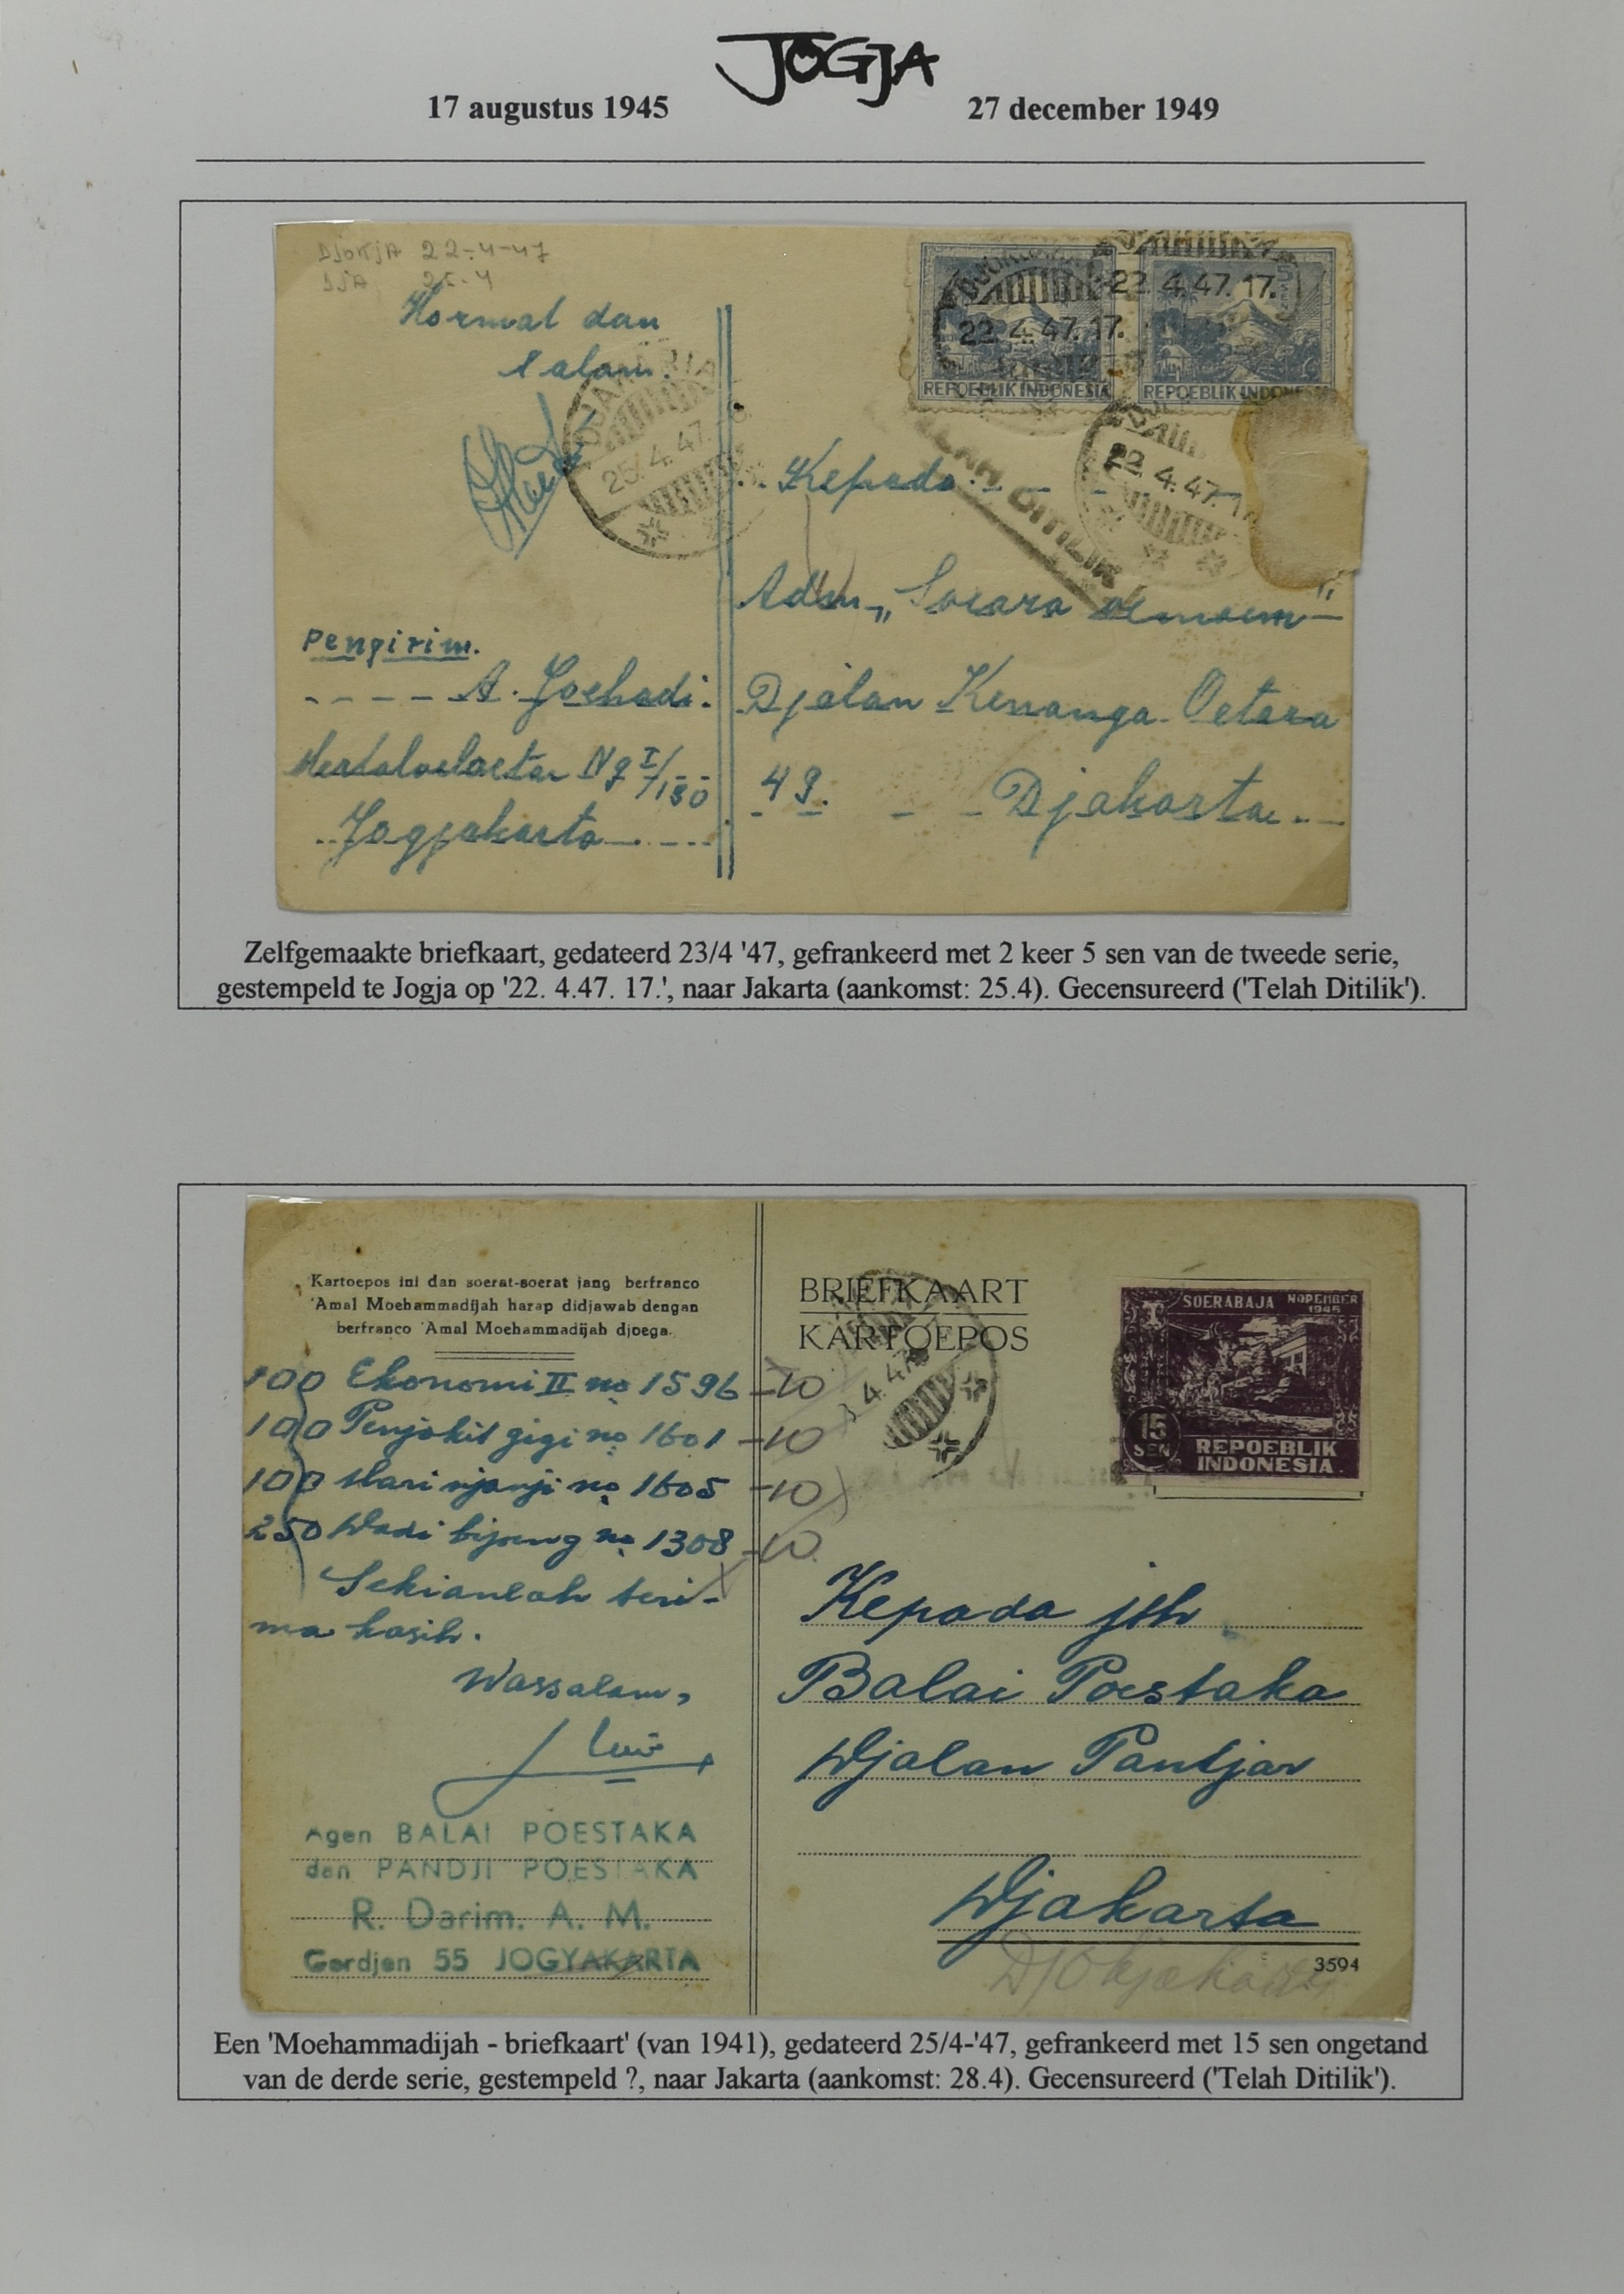 JOGJA
17 augustus 1945
27 december 1949
DJOKJA 22-4-47
DJA 25-4
Hormat dan
salam.
DJAKARTA
25. 4. 47.
22. 4. 47. 17.
22. 4. 47. 17.
5
REPOEBLIK INDONESIA
REPOEBLIK INDONESIA
22. 4. 47. 17
TELAH DITILIK
Kepada
Adm „Soeara oemoem"
Djalan Kenanga Oetara
49. Djakarta
Pengirim.
A. Joehadi.
I/130
Jogjakarta
Zelfgemaakte briefkaart, gedateerd 23/4 '47, gefrankeerd met 2 keer 5 sen van de tweede serie,
gestempeld te Jogja op '22. 4.47. 17.', naar Jakarta (aankomst: 25.4). Gecensureerd ('Telah Ditilik').
Kartoepos ini dan soerat-soerat jang berfranco
'Amal Moehammadijah harap didjawab dengan
berfranco 'Amal Moehammadijah djoega.
100 Ekonomi II no 1596 -10
100 Penjakit gigi no 1601 -10
100 Mari njanji no 1605 -10
250 no 1308 -10
Sekianlah teri-
ma kasih.
Wassalam,
Agen BALAI POESTAKA
dan PANDJI POESTAKA
R. Darim. A. M.
Gerdjen 55 JOGYAKARTA
BRIEFKAART
KARTOEPOS
4. 47
SOERABAJA NOPEMBER
1945
15
SEN
REPOEBLIK
INDONESIA
Kepada jth
Balai Poestaka
Djalan Pantjar
Djakarta
3594
Djokjakarta
Een 'Moehammadijah - briefkaart' (van 1941), gedateerd 25/4-'47, gefrankeerd met 15 sen ongetand
van de derde serie, gestempeld ?, naar Jakarta (aankomst: 28.4). Gecensureerd ('Telah Ditilik').